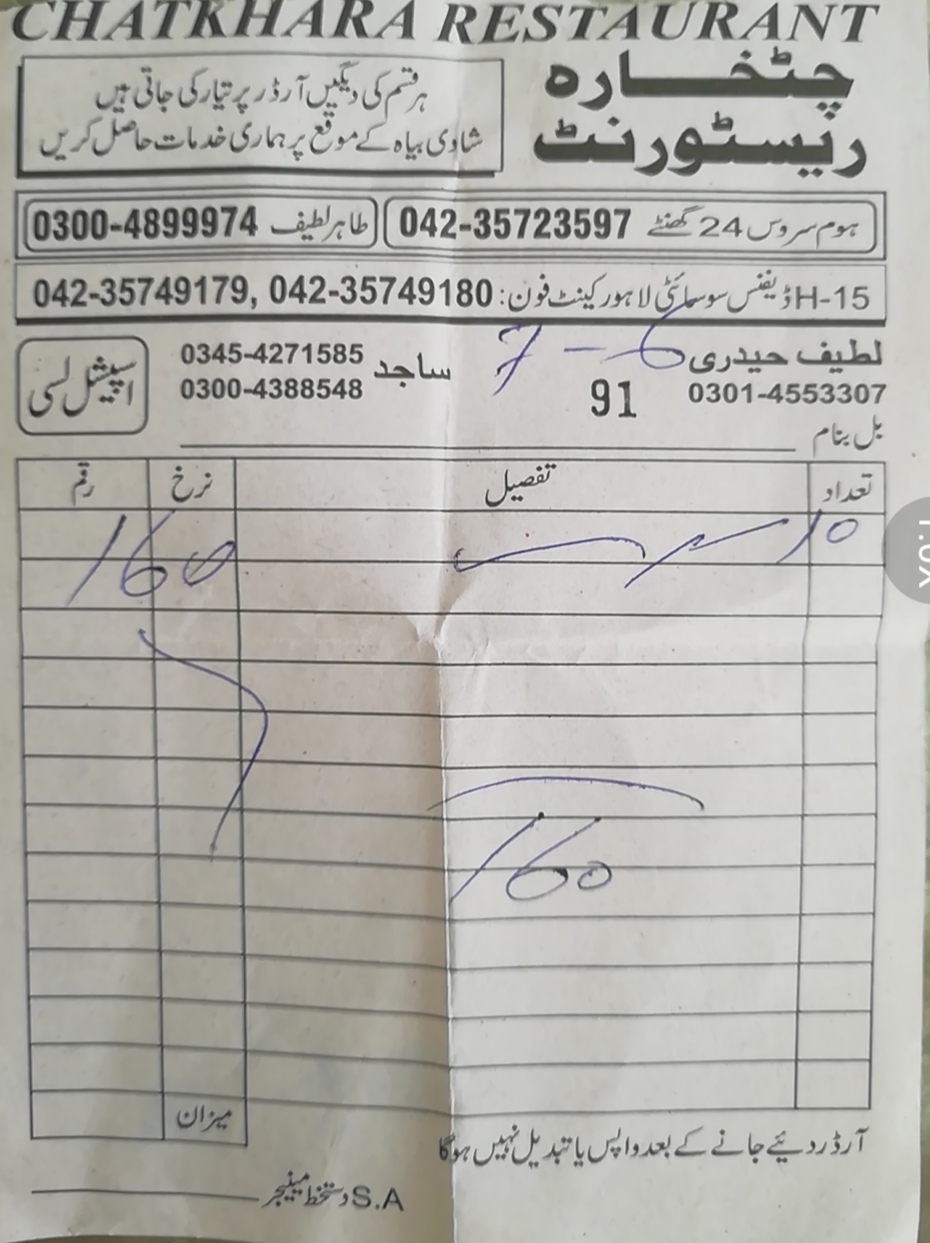 CHATKHARA RESTAURANT
چٹخارہ
ریسٹورنٹ
ہر قسم کی دیگیں آرڈر پر تیار کی جاتی ہیں
شادی بیاہ کے موقع پر ہماری خدمات حاصل کریں
ہوم سروس 24 گھنٹے 042-35723597
طاہر لطیف 0300-4899974
H-15 ڈیفنس سوسائٹی لاہور کینٹ فون: 042-35749179, 042-35749180
لطیف حیدری
0301-4553307
6-7
91
ساجد
0345-4271585
0300-4388548
اسپیشل لسی
بل بنام
تعداد تفصیل نرخ رقم
10 160
160
میزان
آرڈر دئیے جانے کے بعد واپس یا تبدیل نہیں ہوگا
S.A دستخط مینیجر